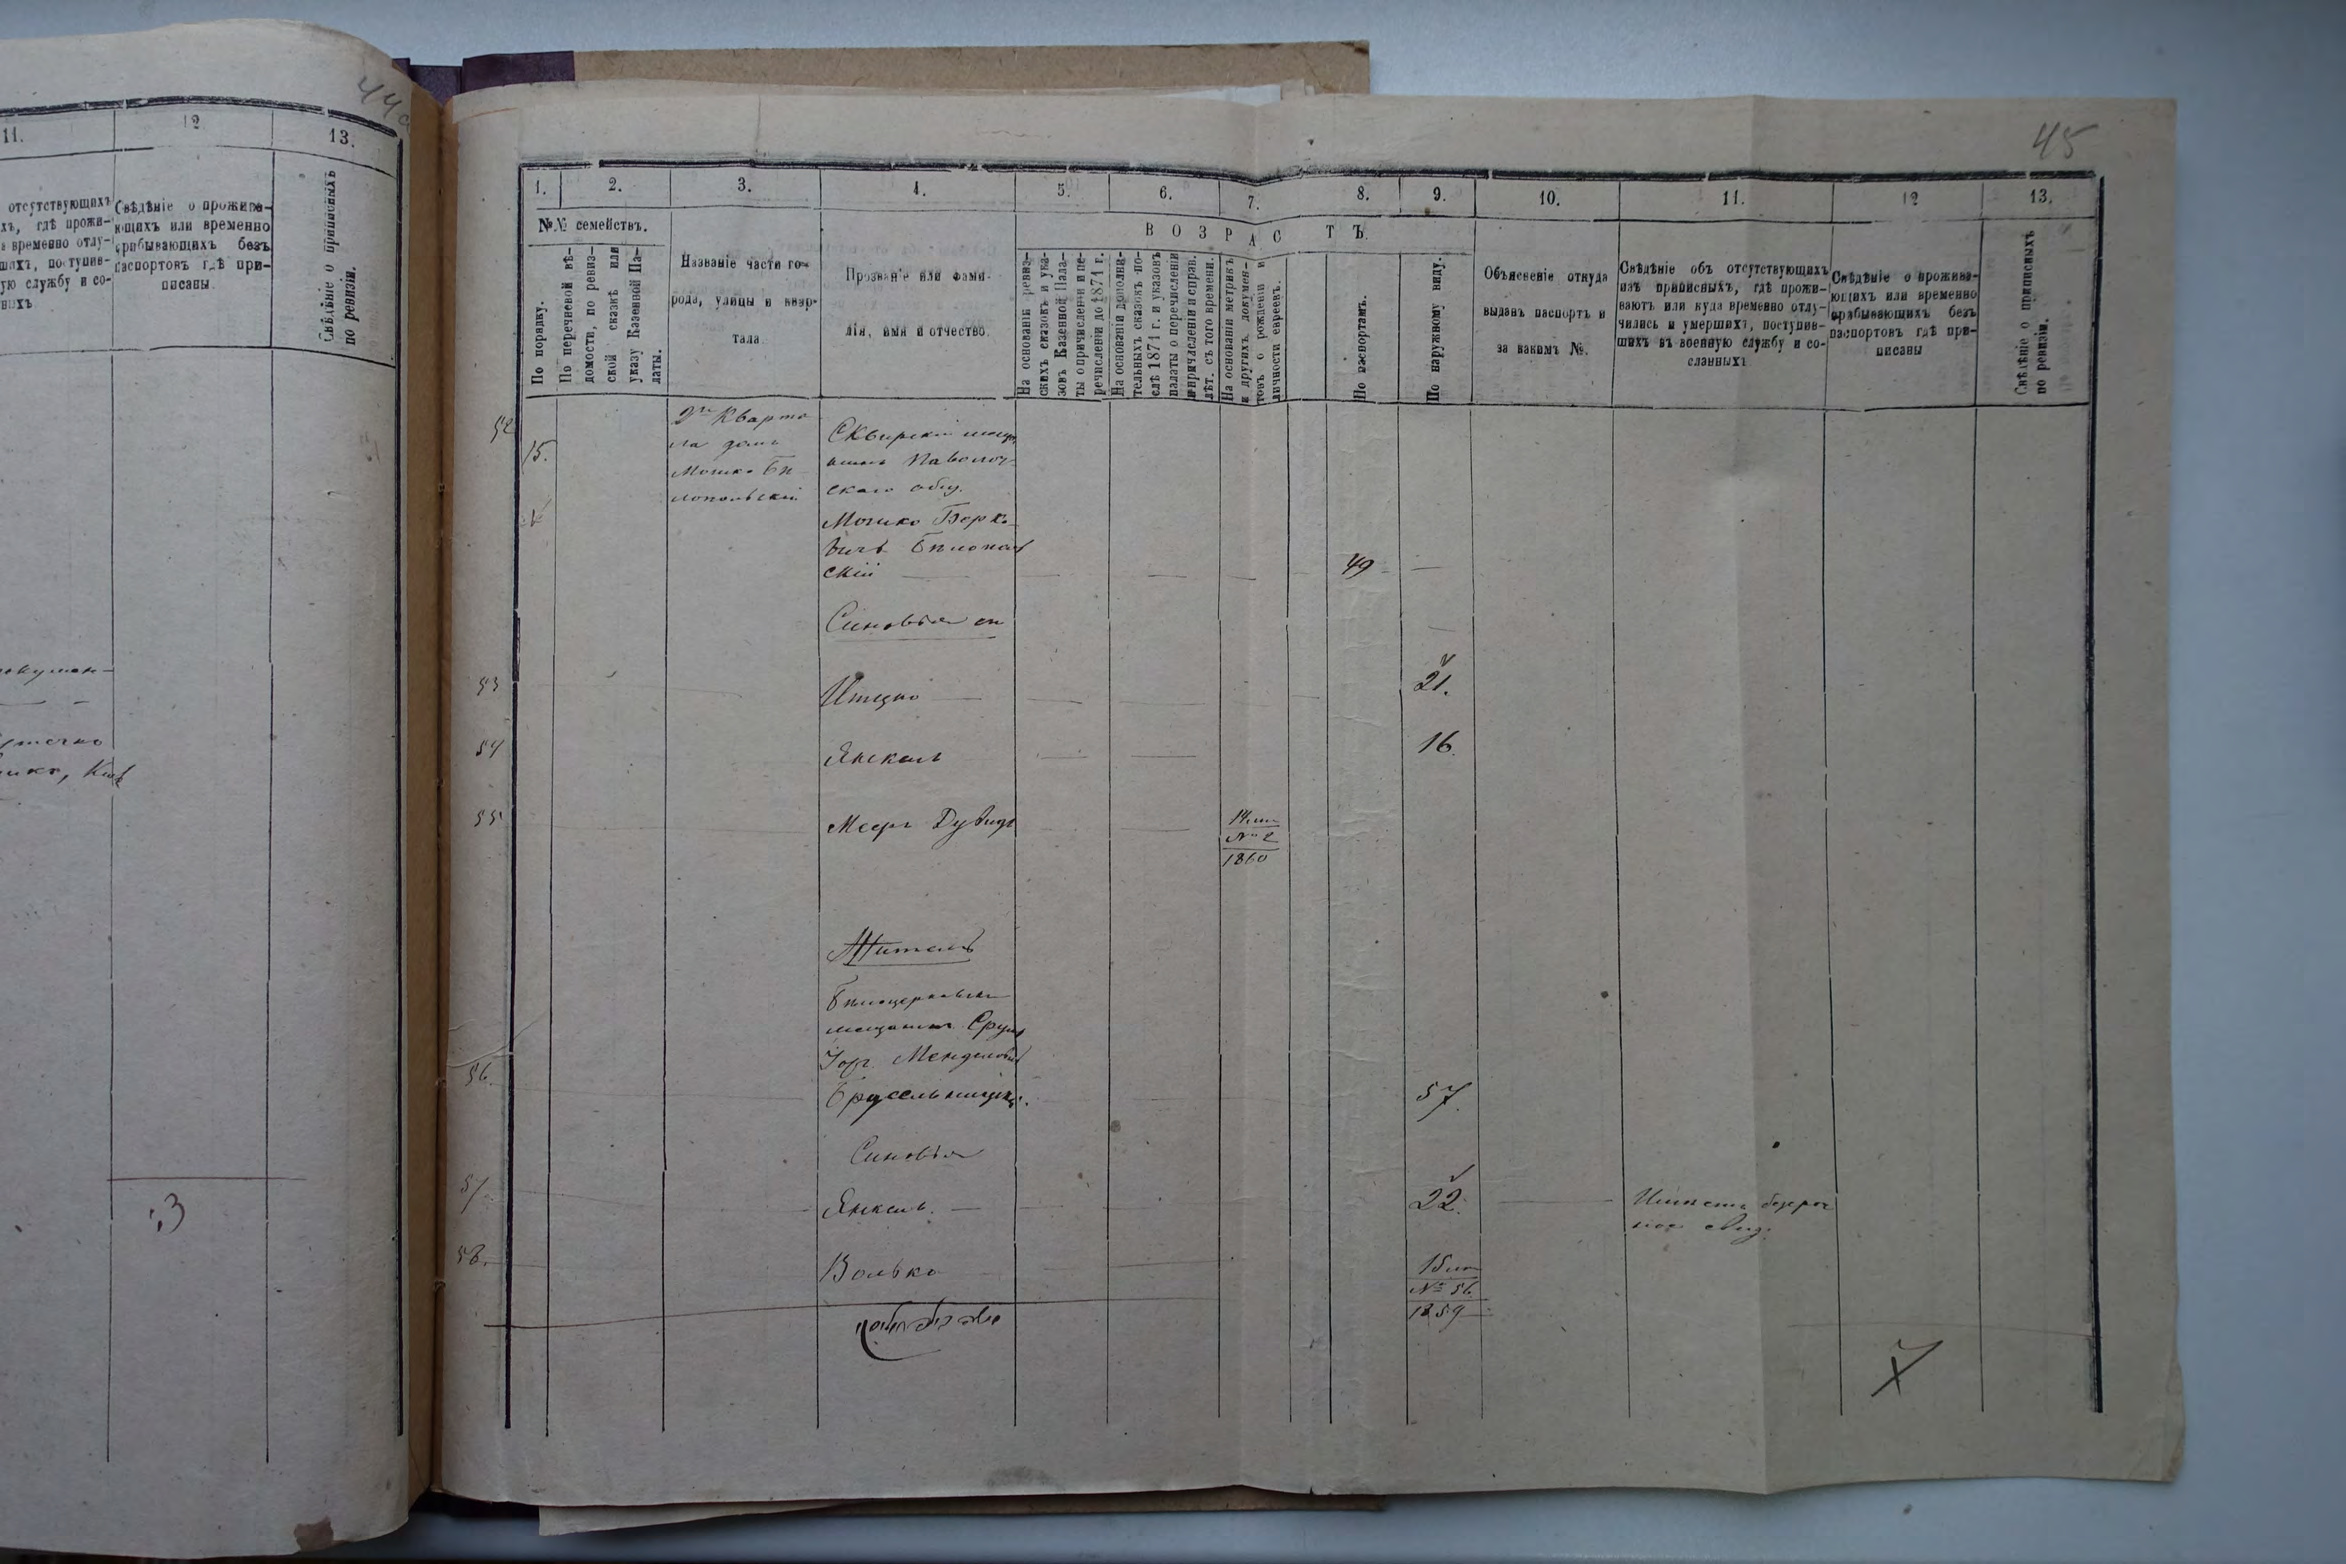 44
11.
12
13.
отсутствующихъ
хъ, гдѣ прожи-
временно отлу-
шихъ, поступив-
ую службу и со-
ныхъ
Свѣдѣніе о прожива-
ющихъ или временно
прибывающихъ безъ
паспортовъ гдѣ при-
писаны
Свѣдѣніе о приписныхъ
по ревизіи.
45
1.
2.
3.
4.
5.
6.
7.
8.
9.
10.
11.
12
13.
№№ семействъ.
По порядку.
По перечневой вѣ-
домости, по ревиз-
ской сказкѣ или
указу Казенной Па-
латы.
Названіе части го-
рода, улицы и квар-
тала
Прозваніе или фами-
лія, имя и отчество.
ВОЗРАСТЪ.
На основаніи ревиз-
скихъ сказокъ и ука-
зовъ Казенной Пала-
ты о причисленіи и пе-
речисленіи до 1871 г.
На основаніи дополни-
тельныхъ сказокъ по-
слѣ 1871 г. и указовъ
палаты о перечисленіи
и причисленіи и справ.
лѣт. съ того времени.
На основаніи метрикъ
и другихъ докумен-
товъ о рожденіи и
личности евреевъ.
По паспортамъ.
По наружному виду.
Объясненіе откуда
выданъ паспортъ и
за какимъ №.
Свѣдѣніе объ отсутствующихъ
изъ приписныхъ, гдѣ прожи-
ваютъ или куда временно отлу-
чились и умершихъ, поступив-
шихъ въ военную службу и со-
сланныхъ
Свѣдѣніе о прожива-
ющихъ или временно
прибывающихъ безъ
паспортовъ гдѣ при-
писаны
Свѣдѣніе о приписныхъ
по ревизіи.
52
15.
2го Кварта
ла домъ
Мошко Бѣ
лопольскій
Сквирскій мѣщ
анинъ Паволоч
скаго общ.
Мошко Берко
вичъ Бѣлополь
скій
49
Сыновья его
53
Ицко
21.
54
Янкель
16.
55
Мееръ Дувидъ
14 лѣт
№ 2
1860
Житель
Бѣлоцерковскій
мѣщанинъ Сруль
Менделевъ
56
57.
Сыновья
57
Янкель.
22.
Имѣетъ безсроч
ное свид.
58.
Волько
15 лѣт
№ 56
1859